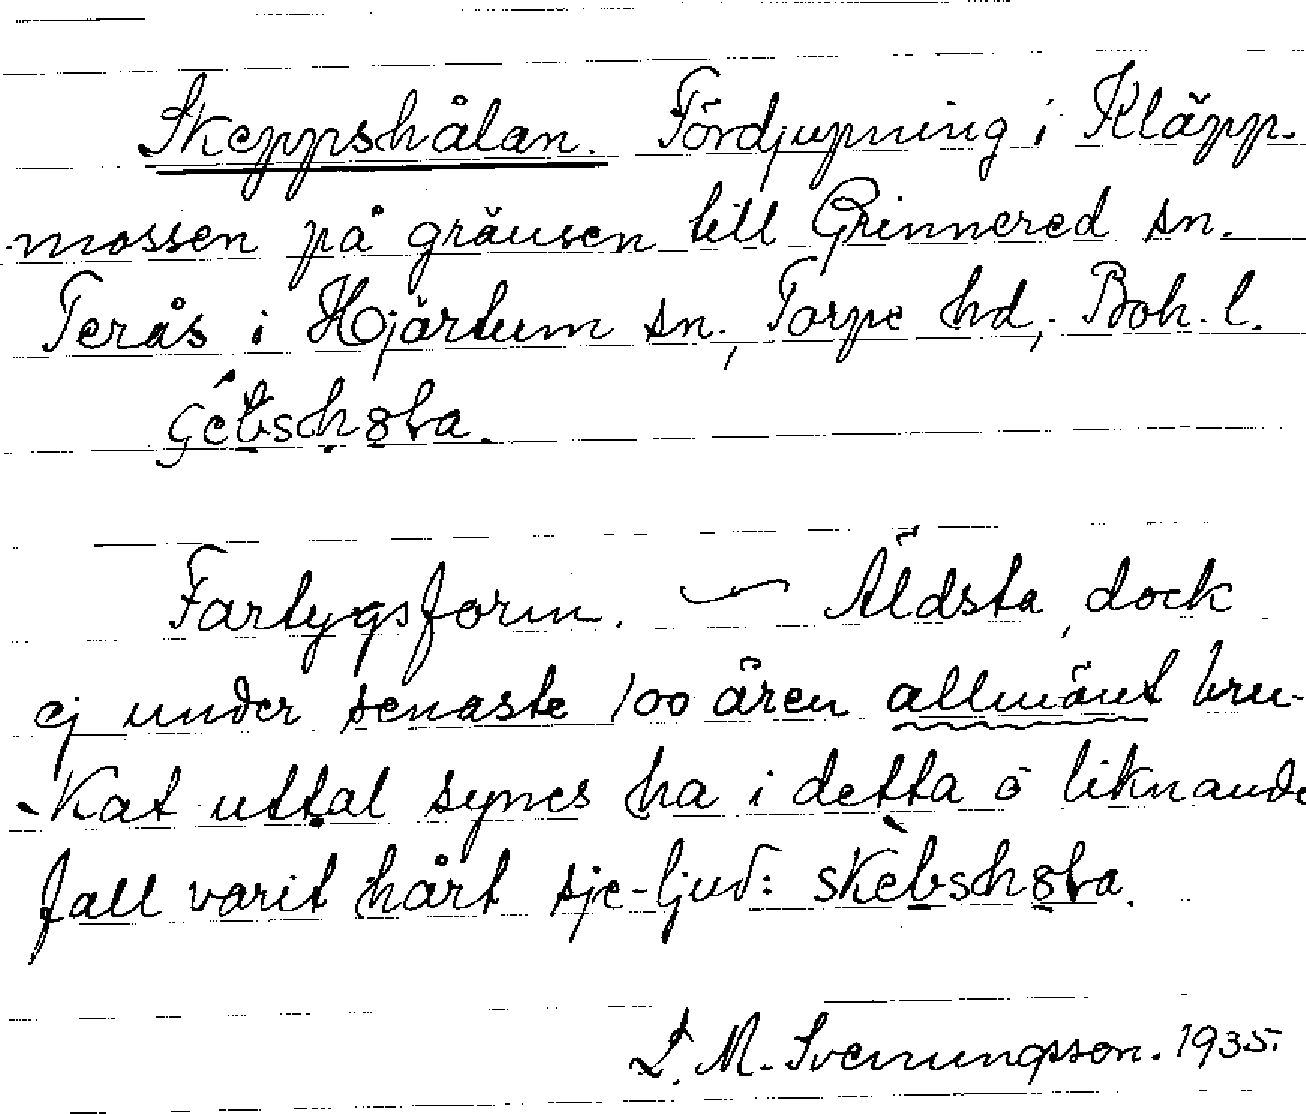 Skeppshålan. Fördjupning i Kläpp-
mossen på gränsen till Grinnered sn.
Terås i Hjärtum sn., Torpe hd, Boh. l.

Fartygsform. — Äldsta, dock
ej under senaste 100 åren allmänt bru-
kat uttal synes ha i detta o liknande
fall varit hårt sje-ljud:
L. M. Svenungsson. 1935.